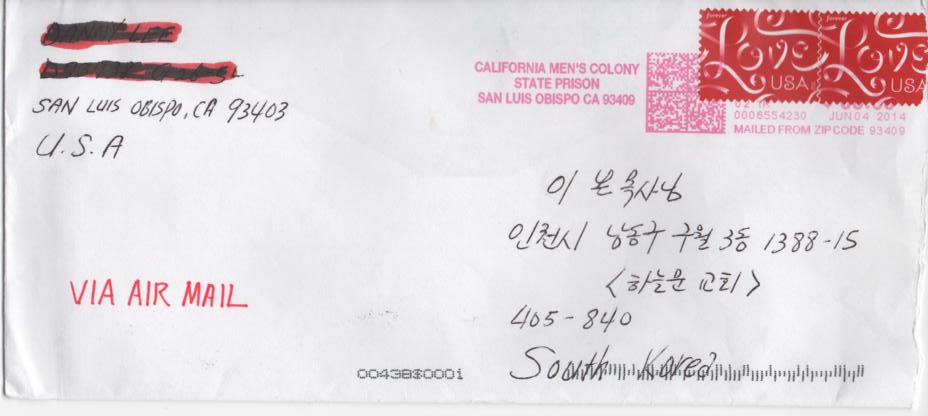 SAN LUIS OBISPO, CA 93403
U.S.A
CALIFORNIA MEN'S COLONY
STATE PRISON
SAN LUIS OBISPO CA 93409
forever
Love
USA
forever
Love
USA
0006554230 JUN 04 2014
MAILED FROM ZIP CODE 93409
이 목사님
인천시 남동구 구월 3동 1388-15
<하늘문 교회>
405-840
South Korea
VIA AIR MAIL
00438$0001